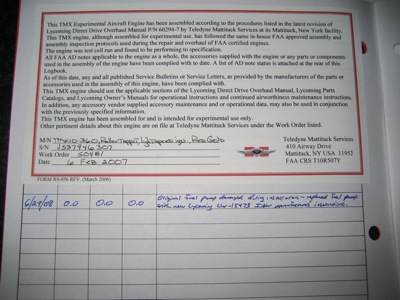 This TMX Experimental Aircraft Engine has been assembled according to the procedures listed in the latest revision of
Lycoming Direct Drive Overhaul Manual P/N 60294-7 by Teledyne Mattituck Services at its Mattituck, New York facility.
This TMX engine, although assembled for experimental use, has followed the same in-house FAA approved assembly and
assembly inspection protocols used during the repair and overhaul of FAA certified engines.
The engine was test cell run and found to be performing to specification.
All FAA AD notes applicable to the engine as a whole, the accessories supplied with the engine or any parts or components
used in the assembly of the engine have been complied with to date. A list of AD note status is attached at the rear of this
Logbook.
As of this date, any and all published Service Bulletins or Service Letters, as provided by the manufacturers of the parts or
accessories used in the assembly of this engine, have been complied with.
This TMX engine should use the applicable sections of the Lycoming Direct Drive Overhaul Manual, Lycoming Parts
Catalogs, and Lycoming Owner's Manuals for operational instructions and continued airworthiness maintenance instructions.
In addition, any accessory vendor supplied accessory maintenance and or operational data, may also be used in conjunction
with the previously specified information.
This TMX engine has been assembled for and is intended for experimental use only.
Other pertinent details about this engine are on file at Teledyne Mattituck Services under the Work Order listed.
M/N
S/N
Work Order
Date 6 FEB 2007
Teledyne Mattituck Services
410 Airway Drive
Mattituck, NY USA 11952
FAA CRS T10R507Y
FORM RS-056 REV. (March 2006)
6/29/08 0.0 0.0 0.0 Original fuel pump damaged during installation - replaced fuel pump
with new Lycoming